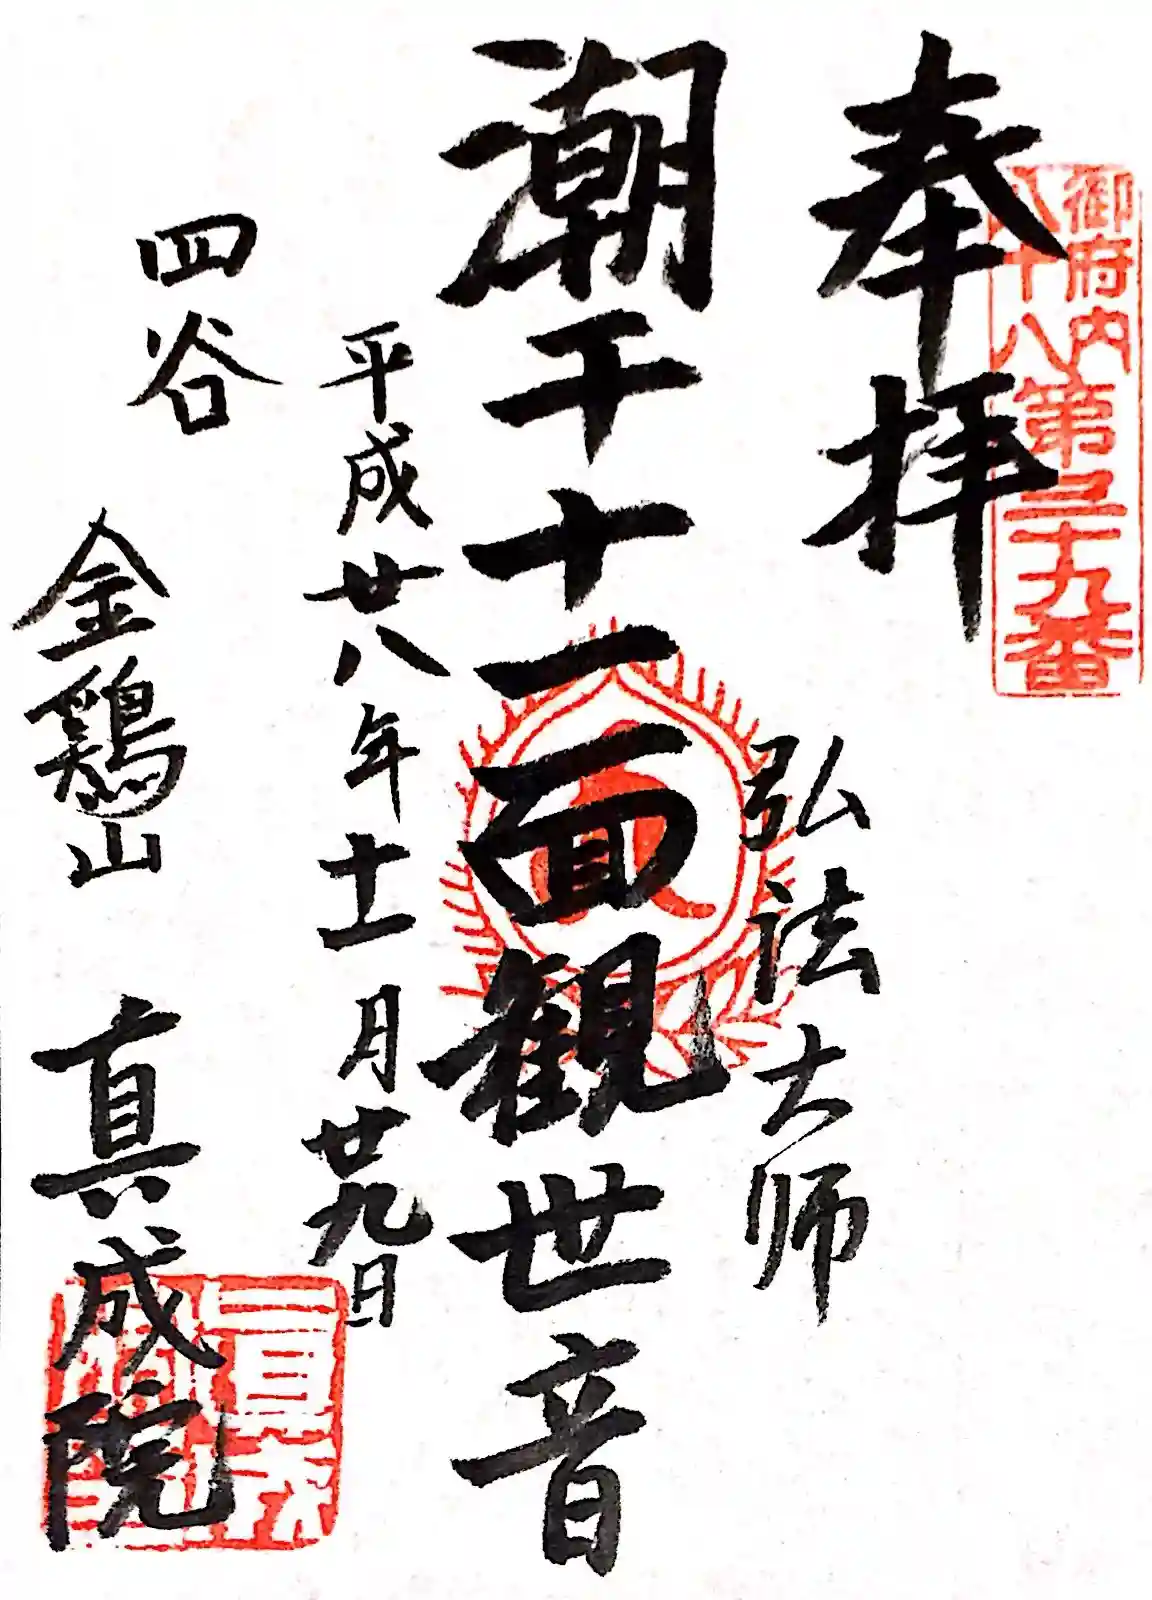 奉拝
御府内
八十八
第三十九番
弘法大師
潮干十一面観世音
平成廿八年十一月廿九日
四谷
金鶏山 真成院